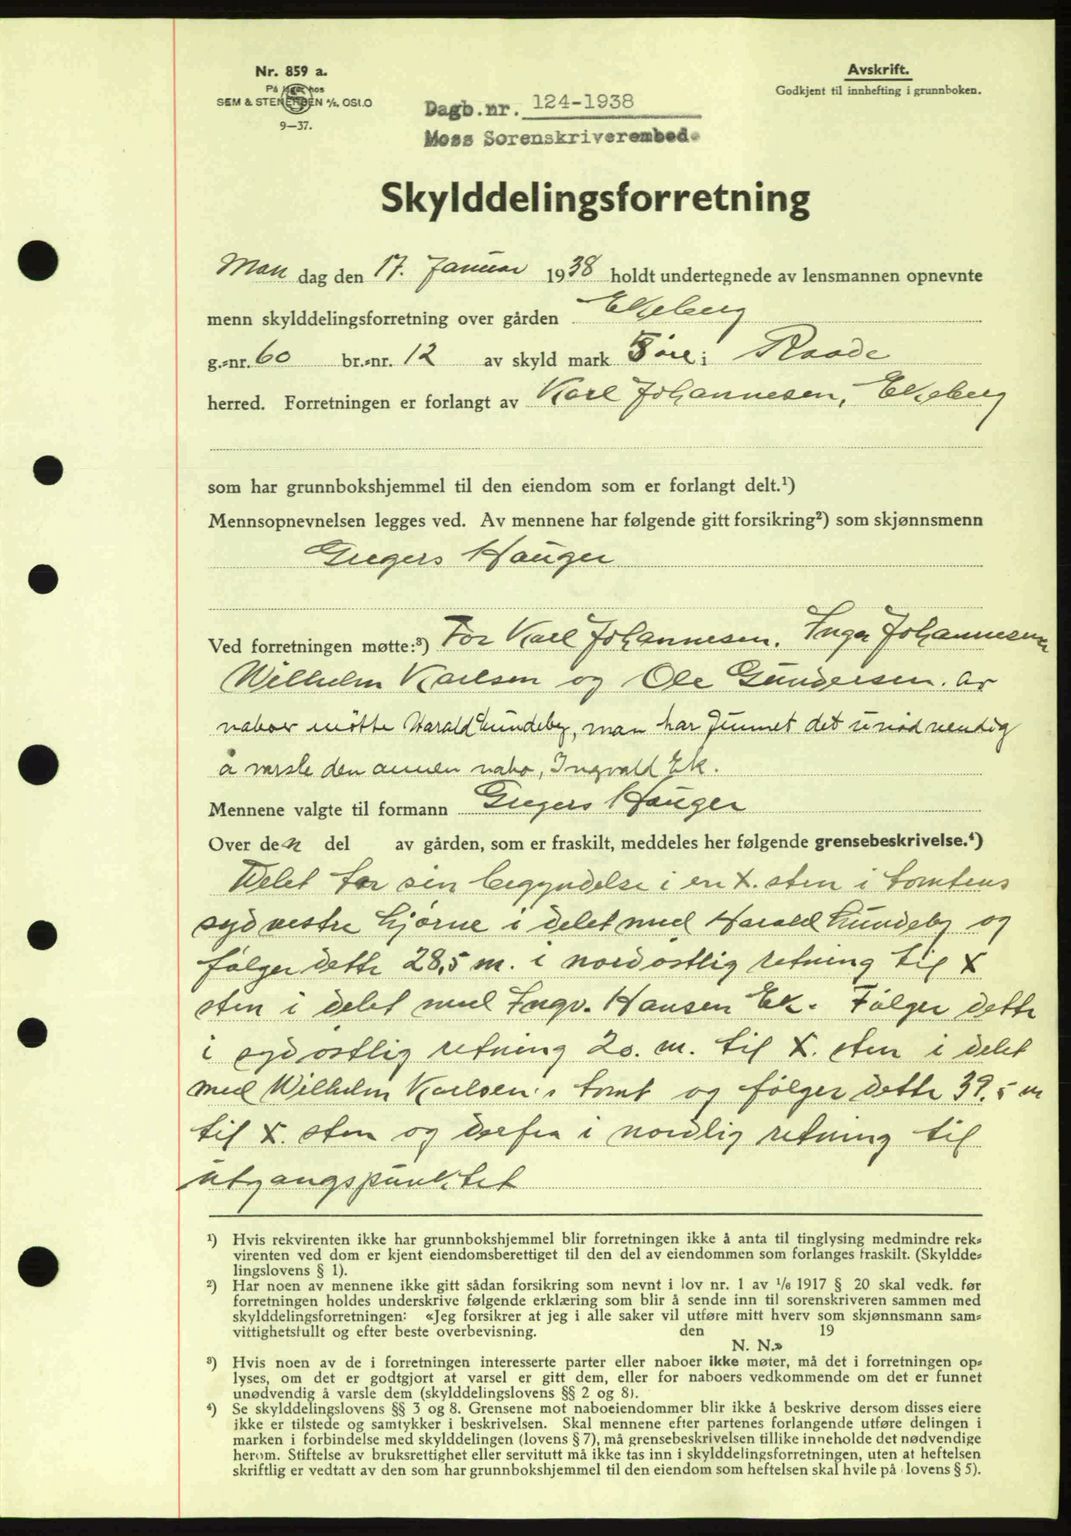 Nr. 859 a.
På lager hos
SEM & STENERSEN A/S, OSLO
9—37.
Dagb.nr. 124-1938
Moss Sorenskriverembede
Avskrift.
Godkjent til innhefting i grunnboken.
Skylddelingsforretning
Man dag den 17. Januar 1938 holdt undertegnede av lensmannen opnevnte
menn skylddelingsforretning over gården Ekeberg
g.=nr. 60 br.=nr. 12 av skyld mark 5 øre i Raade
herred. Forretningen er forlangt av Karl Johannesen, Ekeberg
som har grunnbokshjemmel til den eiendom som er forlangt delt.¹)
Mennsopnevnelsen legges ved. Av mennene har følgende gitt forsikring²) som skjønnsmenn
Gregers Hauger
Ved forretningen møtte:³) For Karl Johannesen. Inga Johannesen
Wilhelm Karlsen og Ole Gundersen. av
naboer møtte Harald Lundeby, man har funnet det unødvendig
å varsle den annen nabo, Ingvald Ek.
Mennene valgte til formann Gregers Hauger
Over den del av gården, som er fraskilt, meddeles her følgende grensebeskrivelse.⁴)
Delet tar sin begyndelse i en X. sten i tomtens
sydvestre hjørne i delet med Harald Lundeby og
følger dette 28,5 m. i nordøstlig retning til X
sten i delet med Ingv. Hansen Ek. Følger dette
i sydøstlig retning 20. m. til X. sten i delet
med Wilhelm Karlsen's tomt og følger dette 39,5 m
til X. sten og derfra i nordlig retning til
utgangspunktet
¹) Hvis rekvirenten ikke har grunnbokshjemmel blir forretningen ikke å anta til tinglysing medmindre rek=
virenten ved dom er kjent eiendomsberettiget til den del av eiendommen som forlanges fraskilt. (Skyldde=
lingslovens § 1).
²) Har noen av mennene ikke gitt sådan forsikring som nevnt i lov nr. 1 av 1/6 1917 § 20 skal vedk. før
forretningen holdes underskrive følgende erklæring som blir å sende inn til sorenskriveren sammen med
skylddelingsforretningen: «Jeg forsikrer at jeg i alle saker vil utføre mitt hverv som skjønnsmann sam=
vittighetsfullt og efter beste overbevisning. den 19
N. N.»
³) Hvis noen av de i forretningen interesserte parter eller naboer ikke møter, må det i forretningen op=
lyses, om det er godtgjort at varsel er gitt dem, eller for naboers vedkommende om det er funnet
unødvendig å varsle dem (skylddelingslovens §§ 2 og 8).
⁴) Se skylddelingslovens §§ 3 og 8. Grensene mot naboeiendommer blir ikke å beskrive dersom disses eiere
ikke er tilstede og samtykker i beskrivelsen. Skal mennene efter partenes forlangende utføre delingen i
marken i forbindelse med skylddelingen (lovens § 7), må grensebeskrivelsen tillike inneholde det nødvendige
herom. Stiftelse av bruksrettighet eller servitutt må ikke tas inn i skylddelingsforretningen, uten at heftelsen
skriftlig er vedtatt av den som har grunnbokshjemmel til den eiendom som heftelsen skal hvile på lovens § 5).